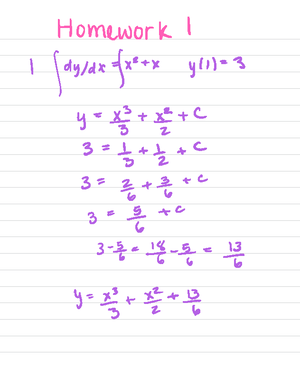 Homework 1
1 ∫dy/dx = ∫x²+x y(1)=3
y = x³/3 + x²/2 + C
3 = 1/3 + 1/2 + C
3 = 2/6 + 3/6 + C
3 = 5/6 + C
3-5/6 = 18/6 - 5/6 = 13/6
y = x³/3 + x²/2 + 13/6